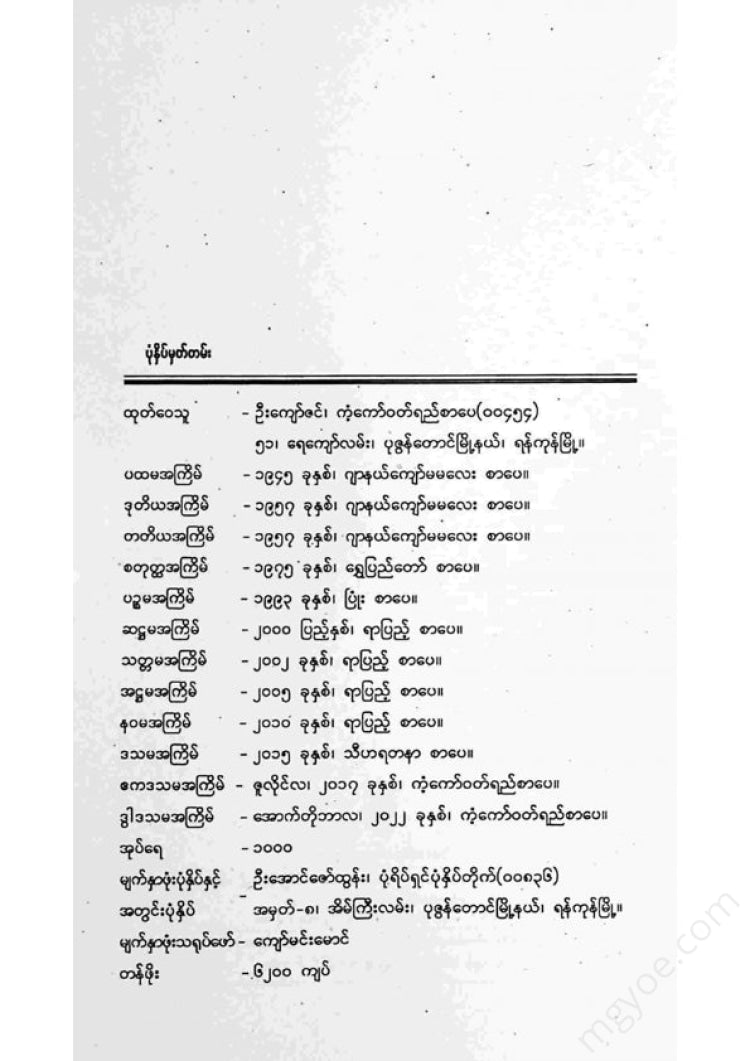 ပုံနှိပ်မှတ်တမ်း
ထုတ်ဝေသူ - ဦးကျော်ဇင်၊ ကံ့ကော်ဝတ်ရည်စာပေ(၀၀၄၅၄)
၅၁၊ ရေကျော်လမ်း၊ ပုဇွန်တောင်မြို့နယ်၊ ရန်ကုန်မြို့။
ပထမအကြိမ် - ၁၉၄၅ ခုနှစ်၊ ဂျာနယ်ကျော်မမလေး စာပေ။
ဒုတိယအကြိမ် - ၁၉၅၇ ခုနှစ်၊ ဂျာနယ်ကျော်မမလေး စာပေ။
တတိယအကြိမ် - ၁၉၅၇ ခုနှစ်၊ ဂျာနယ်ကျော်မမလေး စာပေ။
စတုတ္ထအကြိမ် - ၁၉၇၅ ခုနှစ်၊ ရွှေပြည်တော် စာပေ။
ပဉ္စမအကြိမ် - ၁၉၉၃ ခုနှစ်၊ ပြုံး စာပေ။
ဆဋ္ဌမအကြိမ် - ၂၀၀၀ ပြည့်နှစ်၊ ရာပြည့် စာပေ။
သတ္တမအကြိမ် - ၂၀၀၂ ခုနှစ်၊ ရာပြည့် စာပေ။
အဋ္ဌမအကြိမ် - ၂၀၀၅ ခုနှစ်၊ ရာပြည့် စာပေ။
နဝမအကြိမ် - ၂၀၁၀ ခုနှစ်၊ ရာပြည့် စာပေ။
ဒသမအကြိမ် - ၂၀၁၅ ခုနှစ်၊ သီဟရတနာ စာပေ။
ဧကဒသမအကြိမ် - ဇူလိုင်လ၊ ၂၀၁၇ ခုနှစ်၊ ကံ့ကော်ဝတ်ရည်စာပေ။
ဒွါဒသမအကြိမ် - အောက်တိုဘာလ၊ ၂၀၂၂ ခုနှစ်၊ ကံ့ကော်ဝတ်ရည်စာပေ။
အုပ်ရေ - ၁၀၀၀
မျက်နှာဖုံးပုံနှိပ်နှင့် ဦးအောင်ဇော်ထွန်း၊ ပုံရိပ်ရှင်ပုံနှိပ်တိုက်(၀၀၈၃၆)
အတွင်းပုံနှိပ် - အမှတ်-၈၊ အိမ်ကြီးလမ်း၊ ပုဇွန်တောင်မြို့နယ်၊ ရန်ကုန်မြို့။
မျက်နှာဖုံးသရုပ်ဖော် - ကျော်မင်းမောင်
တန်ဖိုး - ၆၂၀၀ ကျပ်
mgyoe.com